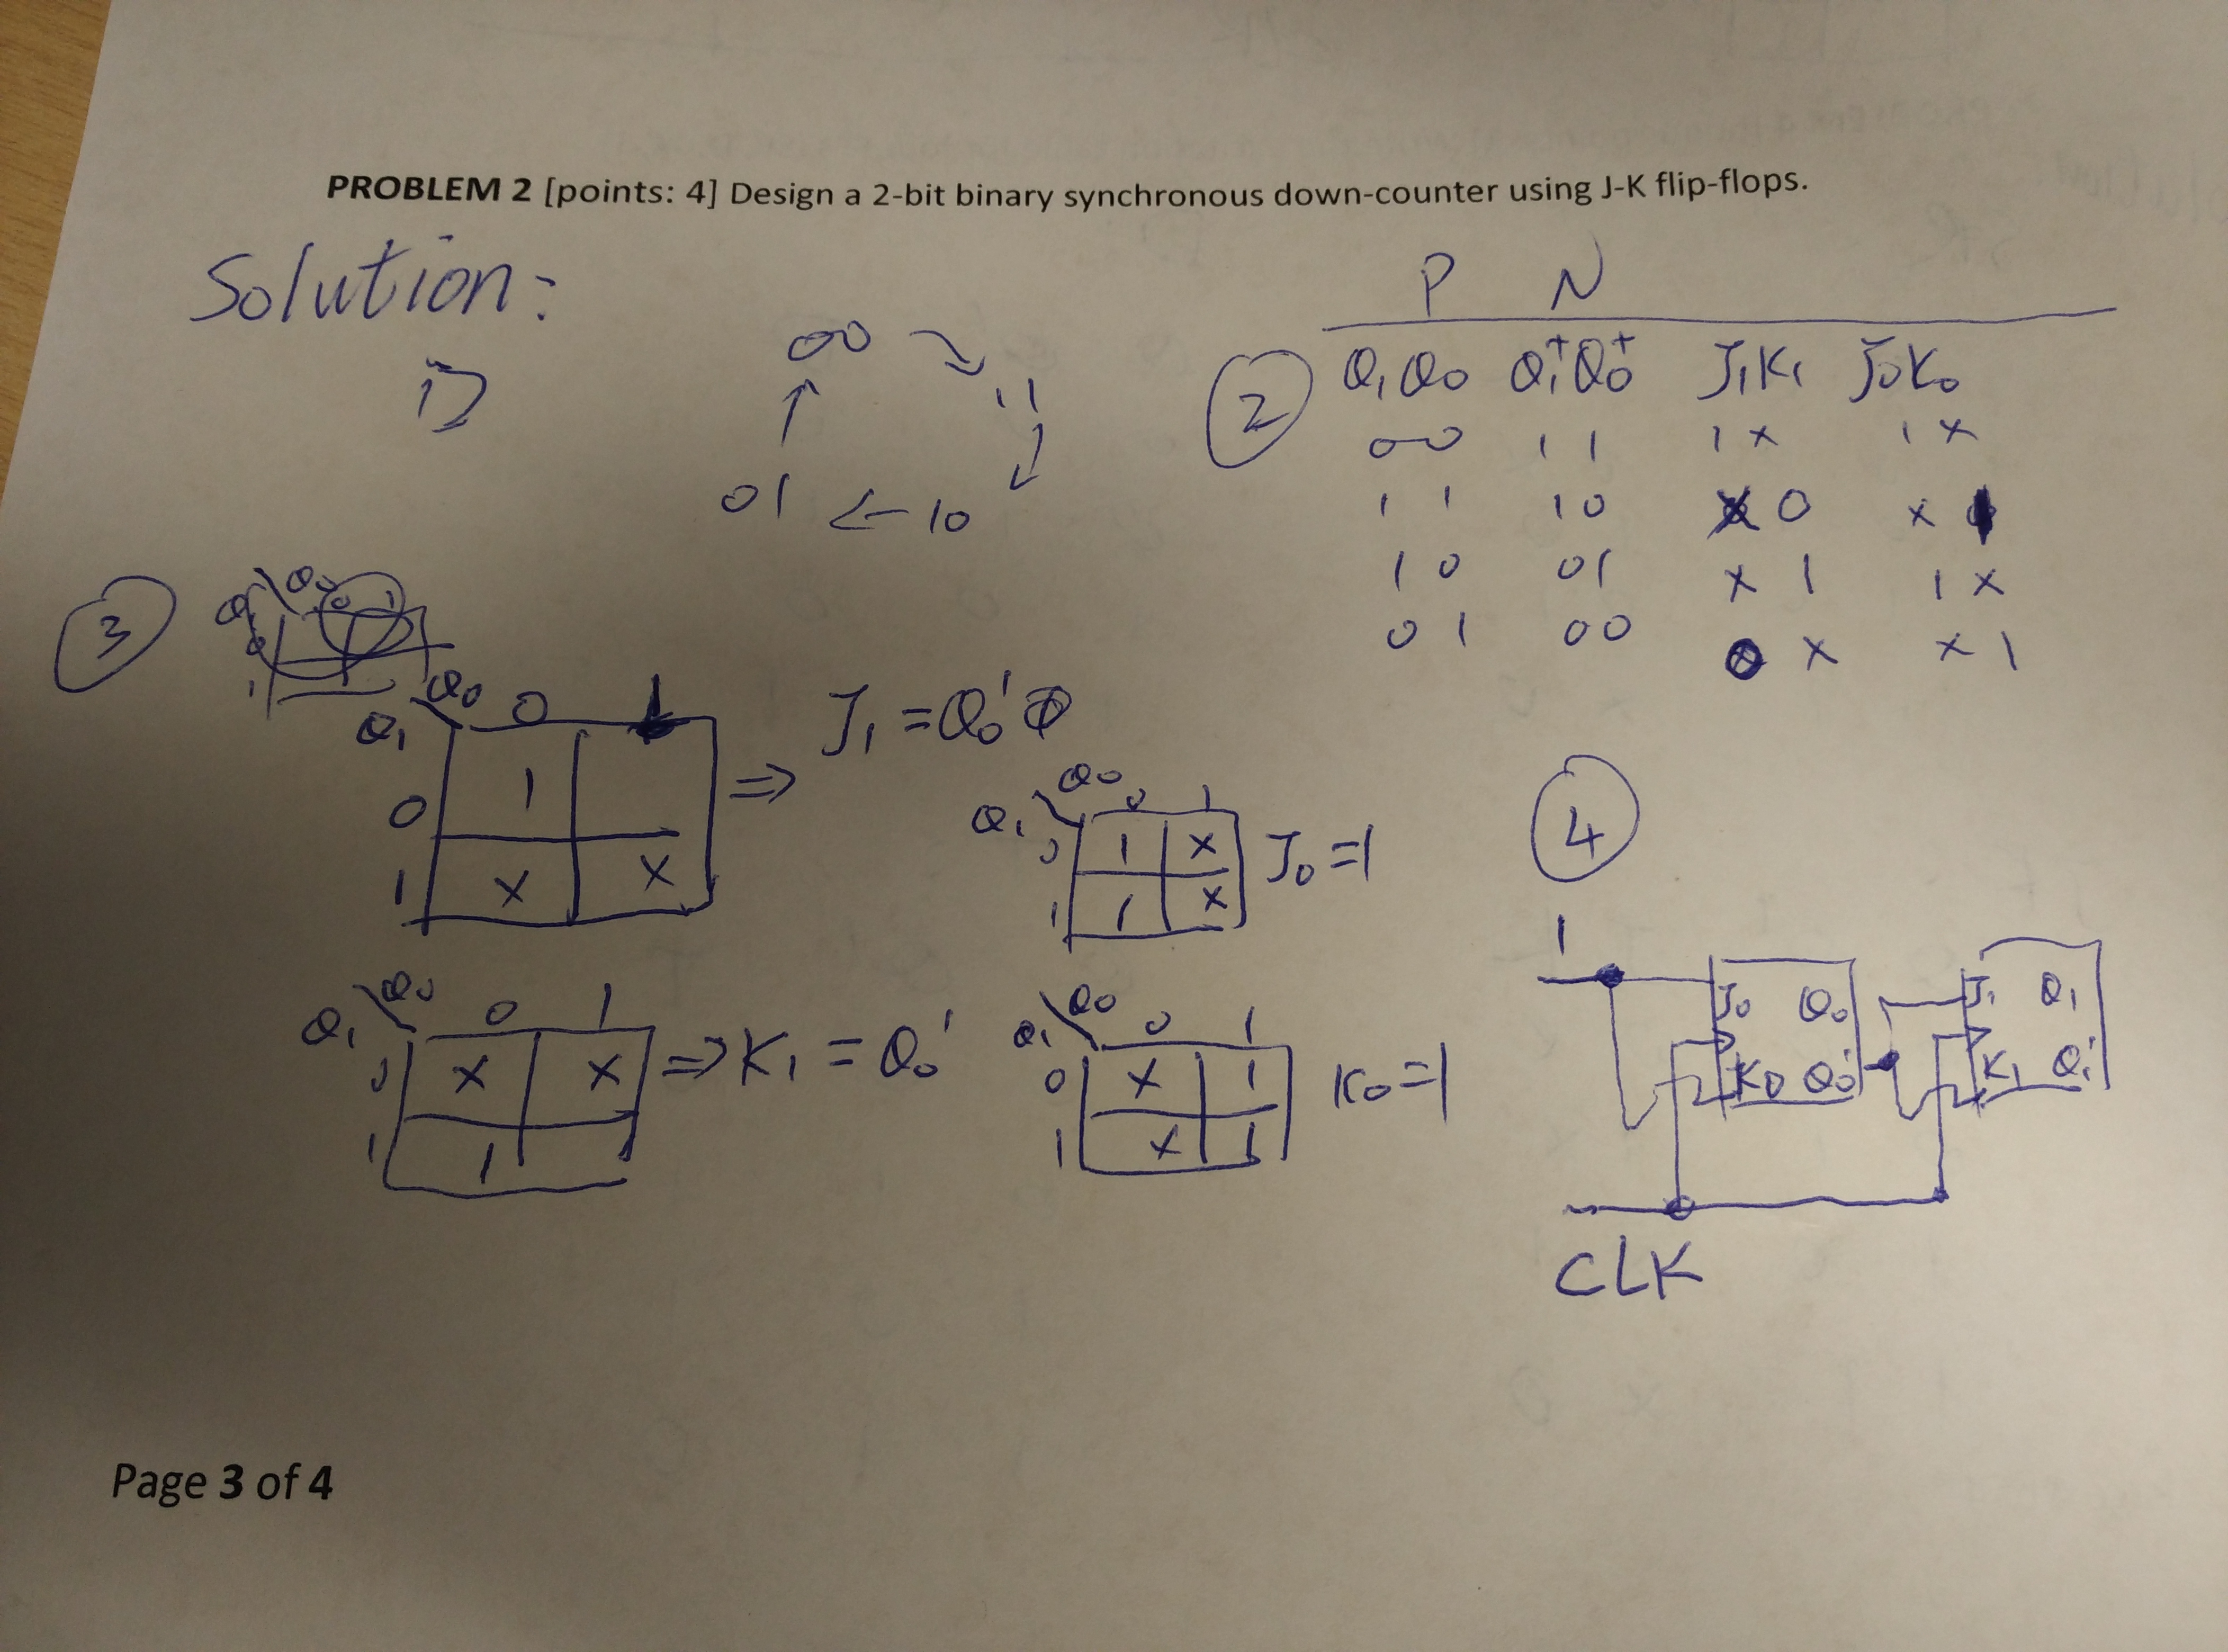 PROBLEM 2 [points: 4] Design a 2-bit binary synchronous down-counter using J-K flip-flops.
Solution:
1)
00
11
01 ← 10
2
P N
Q₁ Q₀ Q₁⁺Q₀⁺ J₁K₁ J₀K₀
00 11 1x 1x
11 10 x0 x1
10 01 x1 1x
01 00 0x x1
3
Q₀ 0 1
Q₁
0 1
1 x x
⇒ J₁ = Q₀'
Q₀ 0 1
Q₁
0 1 x
1 1 x
J₀ = 1
Q₀ 0 1
Q₁
0 x x
1 1
⇒ K₁ = Q₀'
Q₀ 0 1
Q₁
0 x 1
1 x 1
K₀ = 1
4
1
J₀ Q₀ J₁ Q₁
K₀ Q₀' K₁ Q₁'
CLK
Page 3 of 4